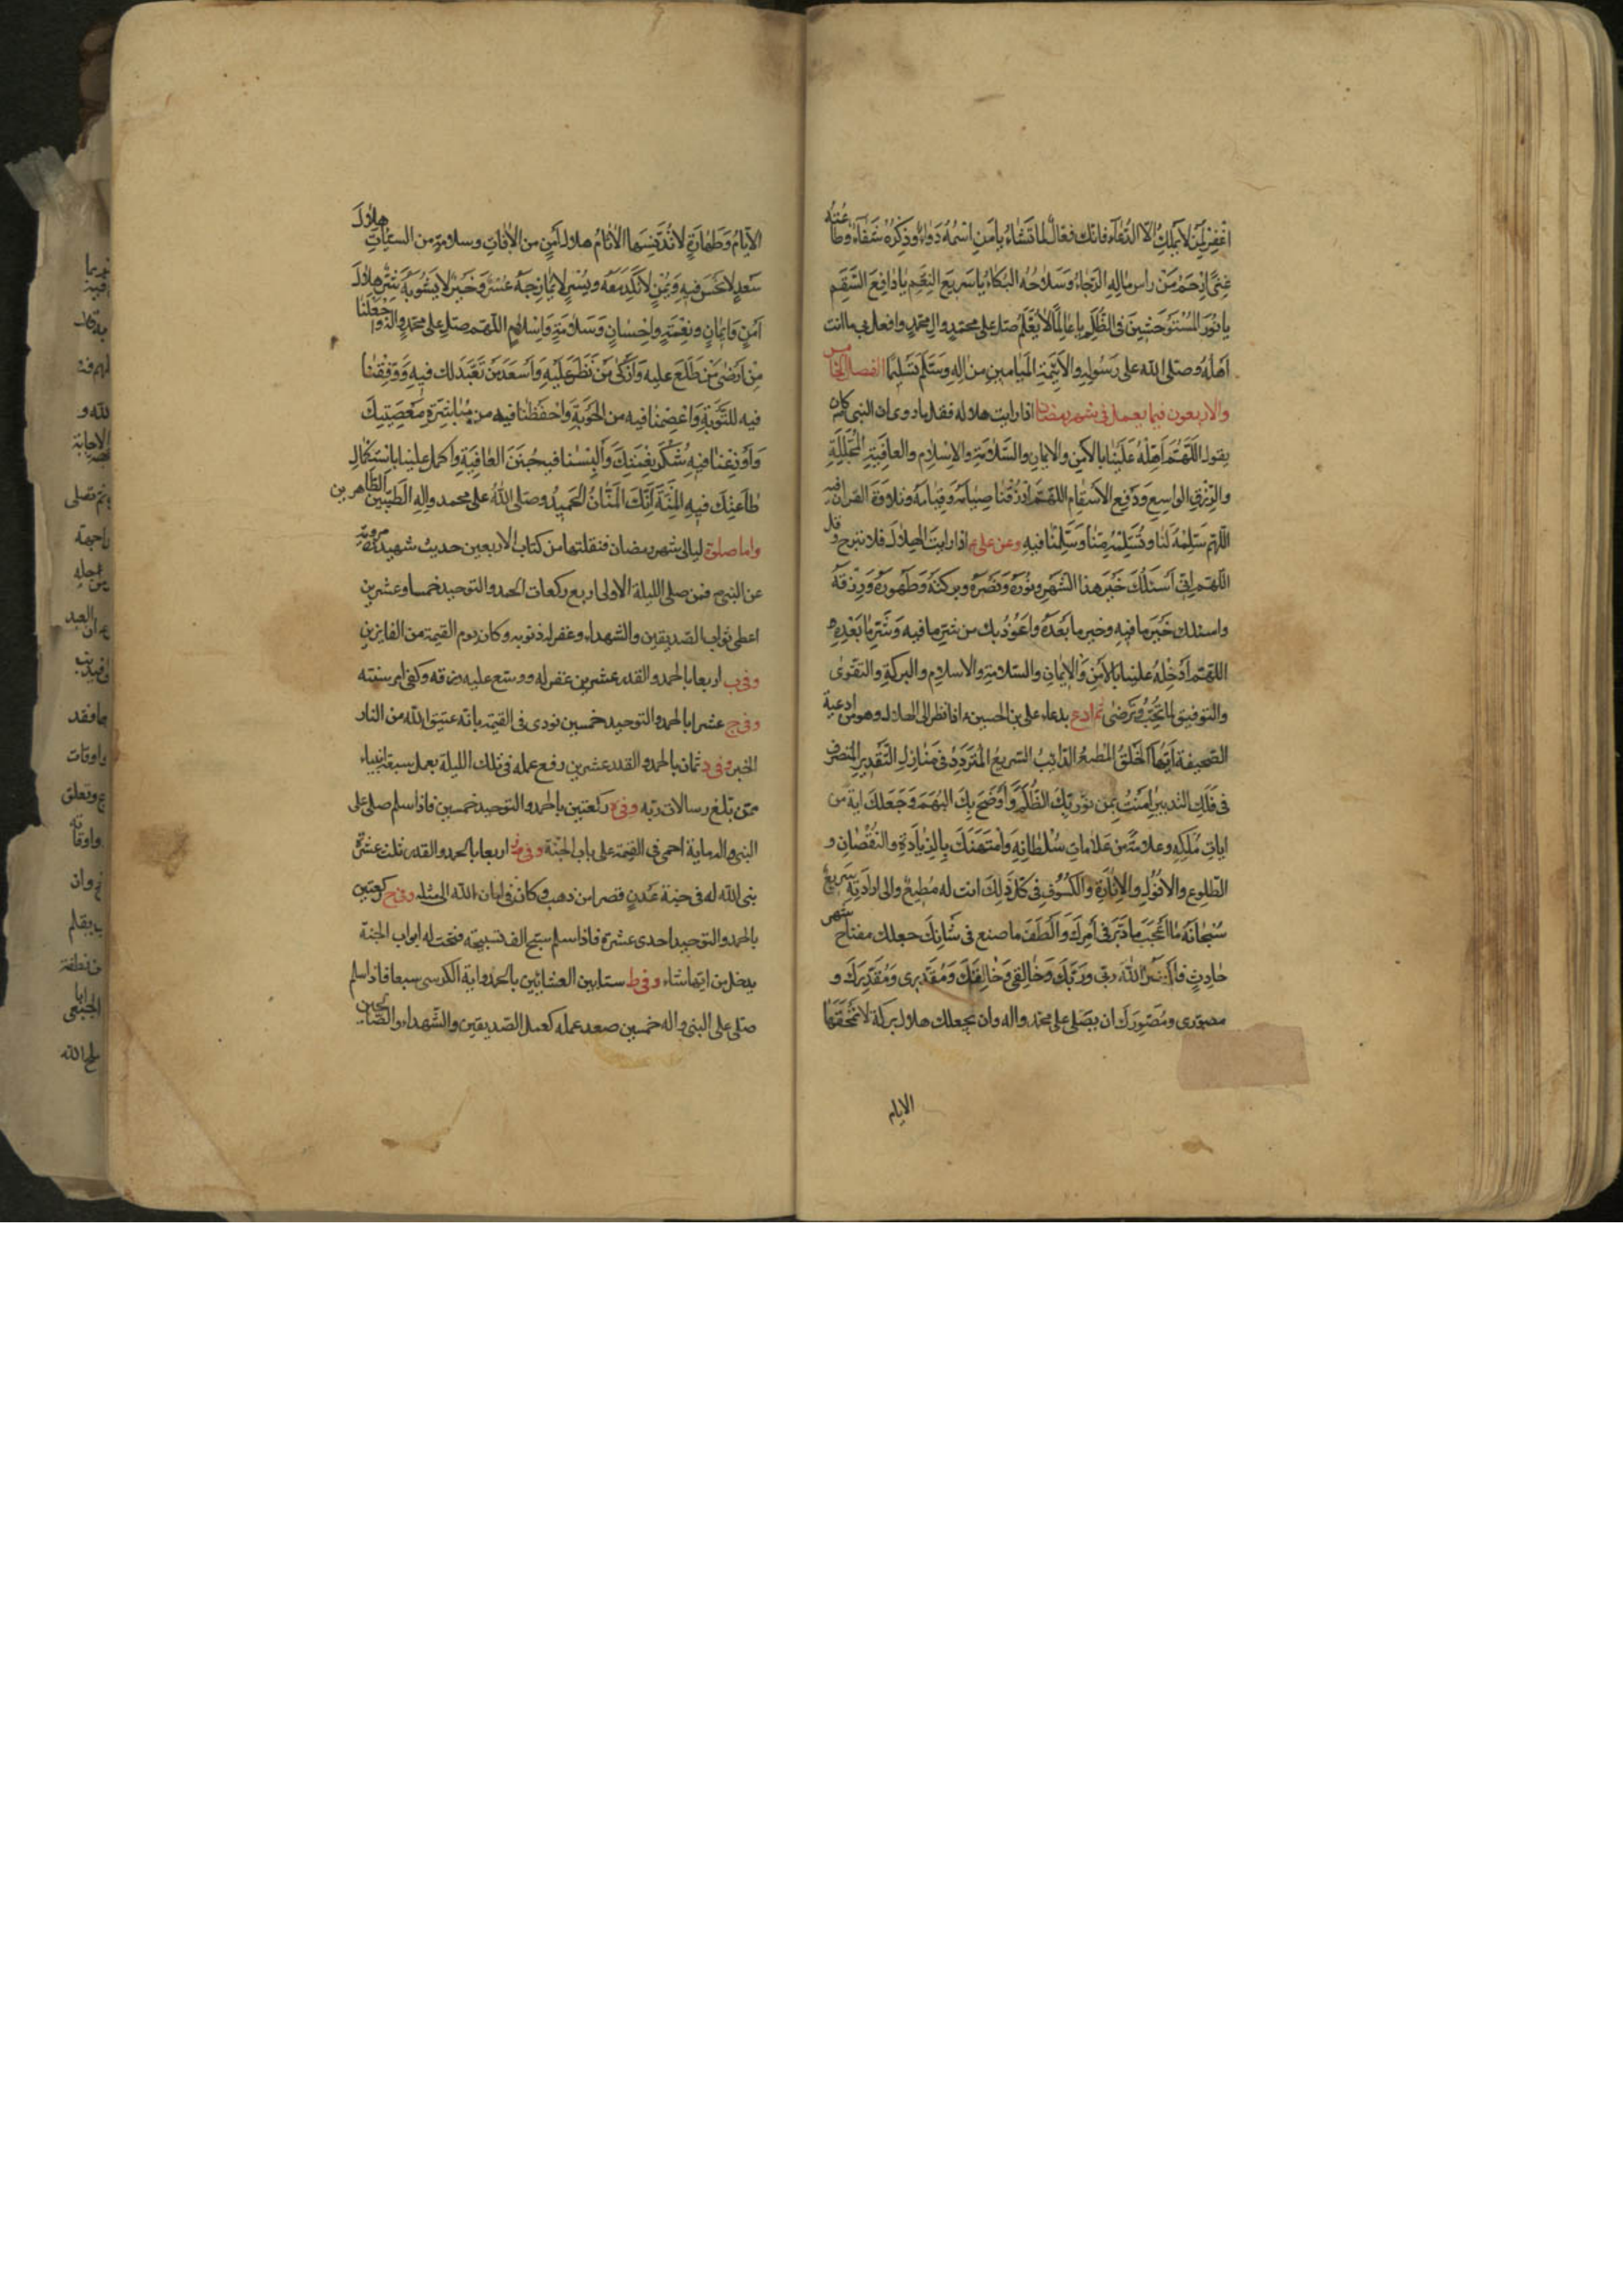 اغفر لمن لا يملك الا الدعاء فانك فعال لما تشاء يا من اسمه دواء وذكره شفاء وطاعته
غنى ارحم من راس ماله الرجاء وسلاحه البكاء يا سريع النعم يا دافع النقم
يا نور المستوحشين في الظلم يا عالما لا يعلم صل على محمد وال محمد وافعل بي ما انت
اهله وصلى الله على رسوله والائمة الميامين من اله وسلم تسليما الفصل الخامس
والاربعون فيما يعمل في شهر رمضان اذا رايت هلاله فقل ما روى ان النبي كان
يقوله اللهم اهله علينا بالامن والايمان والسلامة والاسلام والعافية المجللة
والرزق الواسع ودفع الاسقام اللهم ارزقنا صيامه وقيامه وتلاوة القران فيه
اللهم سلمه لنا وتسلمه منا وسلمنا فيه وعن علي ع اذا رايت الهلال فلا تبرح وقل
اللهم اني اسئلك خير هذا الشهر ونوره ونصره وبركته وطهوره ورزقه
واسئلك خير ما فيه وخير ما بعده واعوذ بك من شر ما فيه وشر ما بعده
اللهم ادخله علينا بالامن والايمان والسلامة والاسلام والبركة والتقوى
والتوفيق لما تحب وترضى ثم ادع بدعاء علي بن الحسين ع اذا نظر الى الهلال وهو من ادعية
الصحيفة ايها الخلق المطيع الدائب السريع المتردد في منازل التقدير المتصرف
في فلك التدبير امنت بمن نور بك الظلم واوضح بك البهم وجعلك اية من
ايات ملكه وعلامة من علامات سلطانه وامتهنك بالزيادة والنقصان و
الطلوع والافول والانارة والكسوف في كل ذلك انت له مطيع والى ارادته سريع
سبحانه ما اعجب ما دبر في امرك والطف ما صنع في شانك جعلك مفتاح شهر
حادث فاسئل الله ربي وربك وخالقي وخالقك ومقدري ومقدرك و
مصوري ومصورك ان يصلي على محمد واله وان يجعلك هلال بركة لا تمحقها
الايام
الايام وطهارة لا تدنسها الاثام هلال امن من الافات وسلامة من السيئات هلال
سعد لا نحس فيه ويمن لا نكد معه ويسر لا يمازجه عسر وخير لا يشوبه شر هلال
امن وايمان ونعمة واحسان وسلامة واسلام اللهم صل على محمد واله واجعلنا
من ارضى من طلع عليه وازكى من نظر عليه واسعد من تعبد لك فيه ووفقنا
فيه للتوبة واعصمنا فيه من الحوبة واحفظنا فيه من مباشرة معصيتك
واوزعنا فيه شكر نعمتك والبسنا فيه جنن العافية واكمل علينا باستكمال
طاعتك فيه المنة انك المنان الحميد وصلى الله على محمد واله الطيبين الطاهرين
واما صلوة ليالي شهر رمضان فنقلتها من كتاب الاربعين حديث شهيد مروية
عن النبي ص فمن صلى الليلة الاولى اربع ركعات الحمد والتوحيد خمسا وعشرين
اعطى ثواب الصديقين والشهداء وغفر له ذنوبه وكان يوم القيمة من الفايزين
وفي ب اربعا بالحمد والقدر عشرين غفر له ووسع عليه رزقه وكفى امر سنته
وفي ج عشرا بالحمد والتوحيد خمسين نودى في القيمة بانه عتيق الله من النار
الخبر وفي د ثمان بالحمد والقدر عشرين رفع عمله في تلك الليلة بعمل سبعة انبياء
ممن بلغ رسالات ربه وفي ه ركعتين بالحمد والتوحيد خمسين فاذا سلم صلى على
النبي واله ماية احمى في القيمة على باب الجنة وفي اربعا بالحمد والقدر ثلث عشرة
بنى الله له في جنة عدن قصرا من ذهب وكان في امان الله الى مثله وفي ح ركعتين
بالحمد والتوحيد احدى عشرة فاذا سلم سبح الف تسبيحة فتحت له ابواب الجنة
يدخل من ايها شاء وفي ط ستا بين العشائين بالحمد واية الكرسي سبعا فاذا سلم
صلى على النبي واله خمسين صعد عمله كعمل الصديقين والشهداء والصالحين